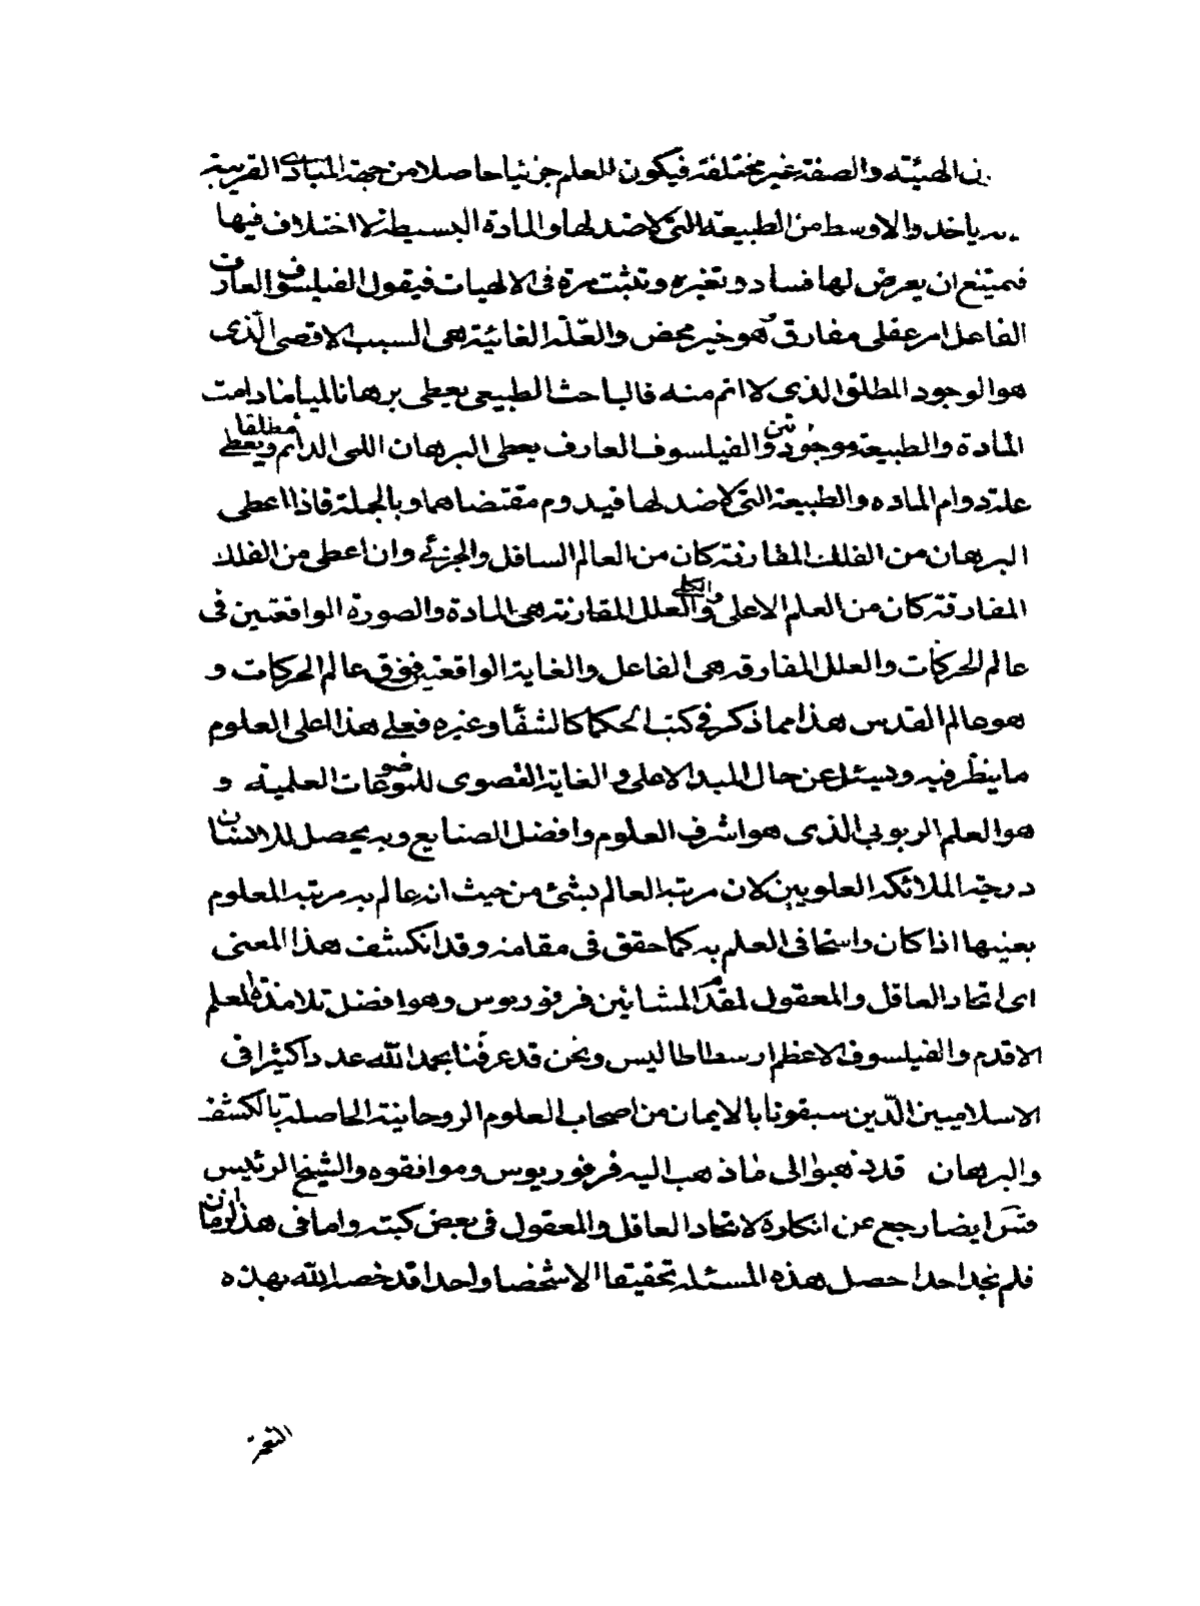 في الهيئة والصفة غير مختلفة فيكون للعلم جزئيا حاصلا من جهة المبادى القريبة
ياخذ والاوسط من الطبيعة التى لا ضد لها والمادة البسيطة لا اختلاف فيها
فيمتنع ان يعرض لها فساد وتغيره وتثبت مرة فى الالهيات فيقول الفيلسوف العارف
الفاعل امر عقلى مفارق هو خير محض والعلّة الغائية هى السبب الاقصى الّذى
هو الوجود المطلق الذى لا اتم منه فالباحث الطبيعى يعطى برهانا لميا مادامت
المادة والطبيعة موجودتين والفيلسوف العارف يعطى البرهان اللمى الدائم مطلقا ويعطى
علة دوام الماده والطبيعة التى لا ضد لها فيدوم مقتضاهما وبالجملة فاذا اعطى
البرهان من العلل المقارنة كان من العالم السافل والجزئى وان اعطى من العلل
المفارقة كان من العلم الاعلى والكلى والعلل المقارنة هى المادة والصورة الواقعتين فى
عالم الحركات والعلل المفارقة هى الفاعل والغاية الواقعتين فوق عالم الحركات و
هو عالم القدس هذا مما ذكر فى كتب الحكما كالشفا وغيره فعلى هذا اعلى العلوم
ما ينظر فيه ويسئل عن حال المبدا الاعلى والغاية القصوى للموضوعات العلمية و
هو العلم الربوبى الذى هو اشرف العلوم وافضل الصنايع وبه يحصل للانسان
درجة الملائكة العلويين لان مرتبة العالم بشئ من حيث انه عالم به مرتبة المعلوم
بعينها اذا كان راسخا فى العلم به كما حقق فى مقامه وقد انكشف هذا المعنى
اى اتحاد العاقل والمعقول لمقدم المشائين فرفوريوس وهو افضل تلامذة المعلم
الاقدم والفيلسوف الاعظم ارسطاطاليس ونحن قد عرفنا بحمد الله عددا كثيرا فى
الاسلاميين الّذين سبقونا بالايمان من اصحاب العلوم الروحانية الحاصلة بالكشف
والبرهان قد ذهبوا الى ما ذهب اليه فرفوريوس وموافقوه والشيخ الرئيس
ايضا رجع عن انكاره لاتحاد العاقل والمعقول فى بعض كتبه واما فى هذا الزمان
فلم نجد احدا حصل هذه المسئلة تحقيقا الا شخصا واحدا قد خصه الله بهذه